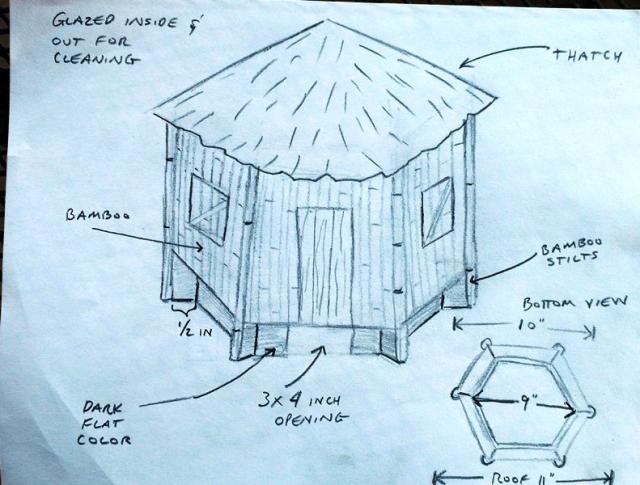 GLAZED INSIDE &
OUT FOR
CLEANING
THATCH
BAMBOO
BAMBOO
STILTS
1/2 IN
BOTTOM VIEW
10"
DARK
FLAT
COLOR
3 X 4 INCH
OPENING
9"
ROOF 11"